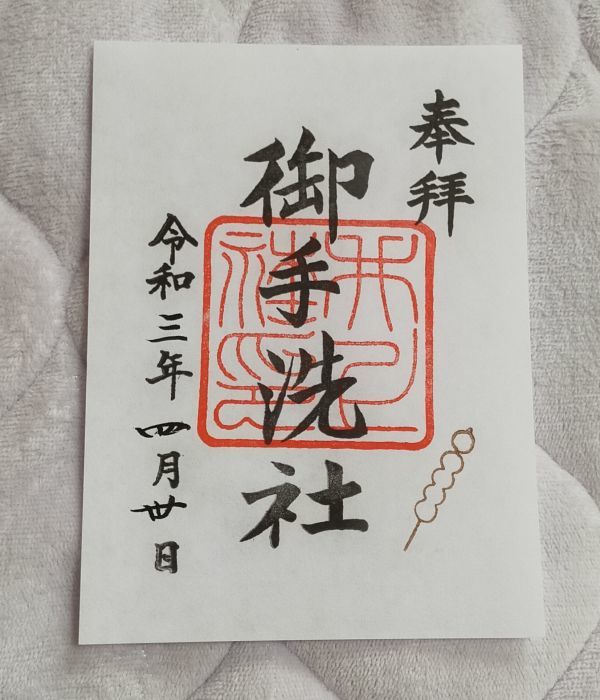 奉拝
御手洗社
令和三年四月丗日